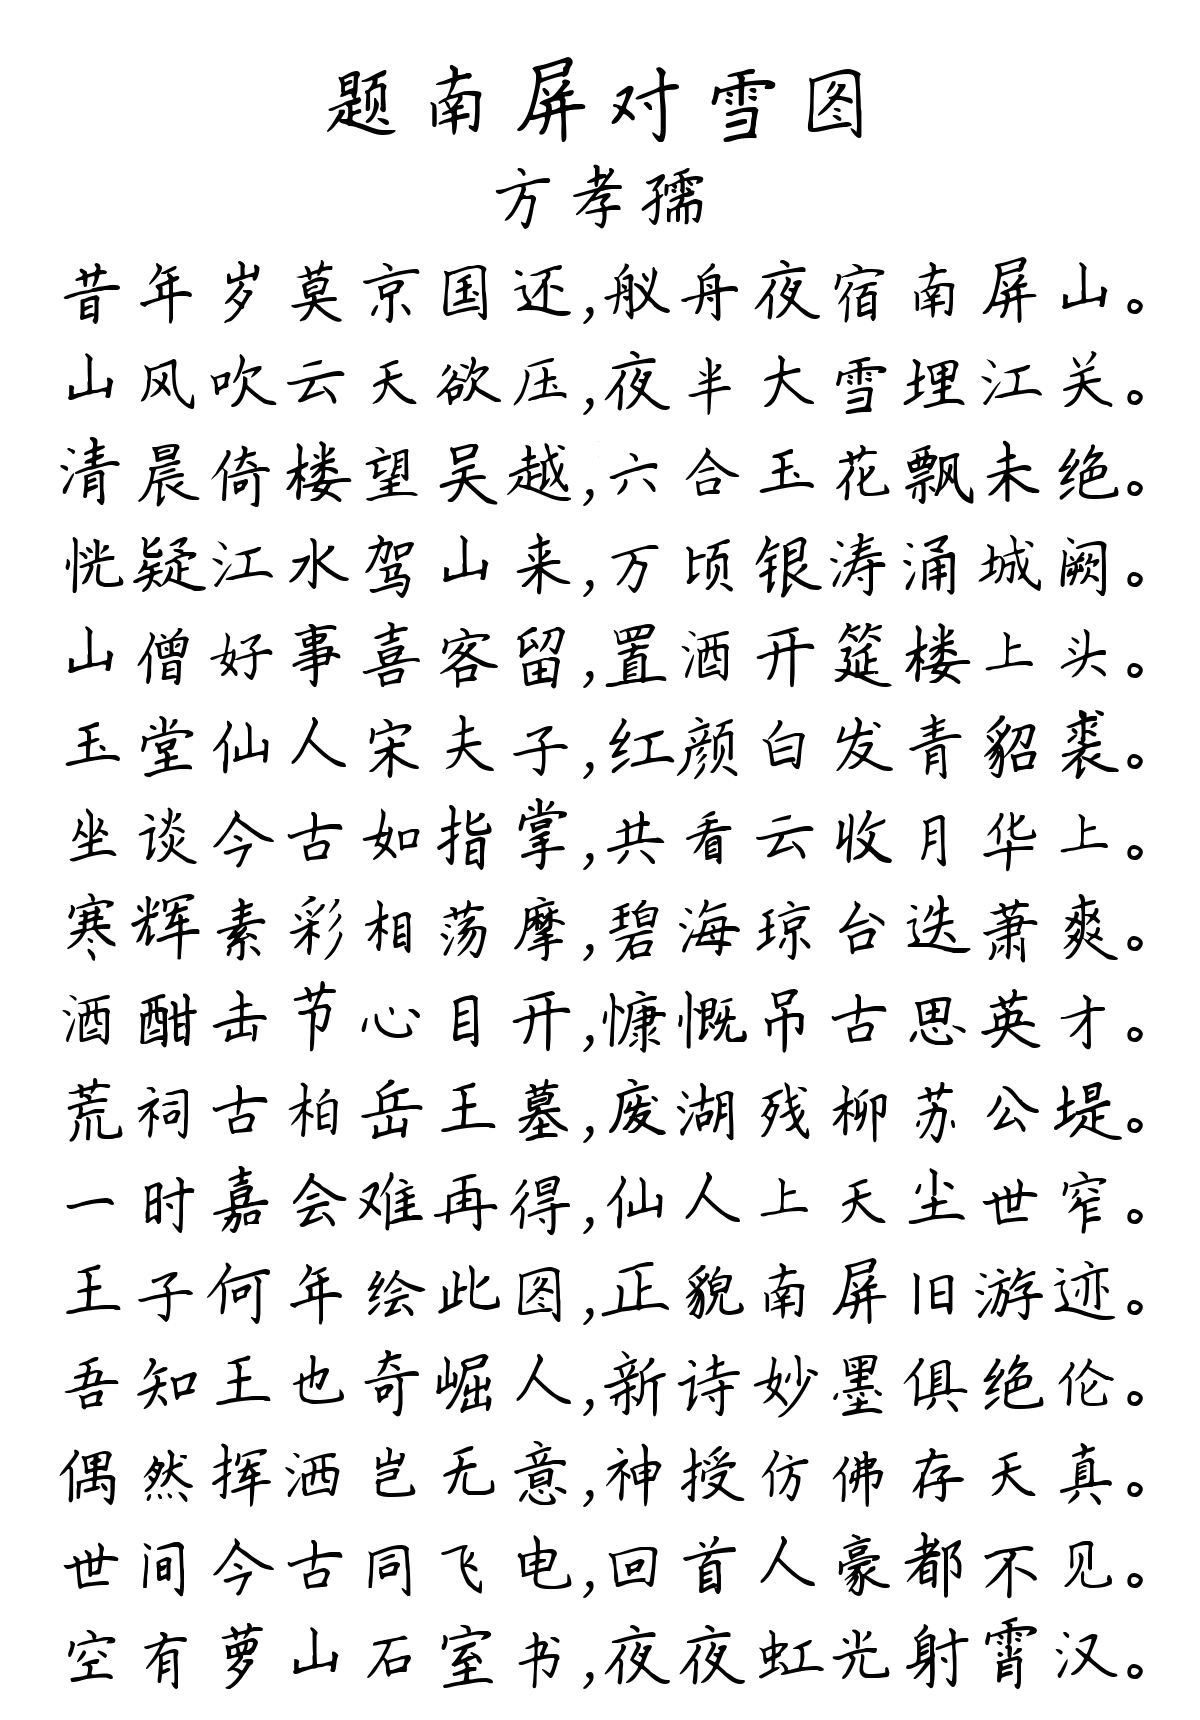 题南屏对雪图
方孝孺
昔年岁莫京国还,舣舟夜宿南屏山。
山风吹云天欲压,夜半大雪埋江关。
清晨倚楼望吴越,六合玉花飘未绝。
恍疑江水驾山来,万顷银涛涌城阙。
山僧好事喜客留,置酒开筵楼上头。
玉堂仙人宋夫子,红颜白发青貂裘。
坐谈今古如指掌,共看云收月华上。
寒辉素彩相荡摩,碧海琼台迭萧爽。
酒酣击节心目开,慷慨吊古思英才。
荒祠古柏岳王墓,废湖残柳苏公堤。
一时嘉会难再得,仙人上天尘世窄。
王子何年绘此图,正貌南屏旧游迹。
吾知王也奇崛人,新诗妙墨俱绝伦。
偶然挥洒岂无意,神授仿佛存天真。
世间今古同飞电,回首人豪都不见。
空有萝山石室书,夜夜虹光射霄汉。